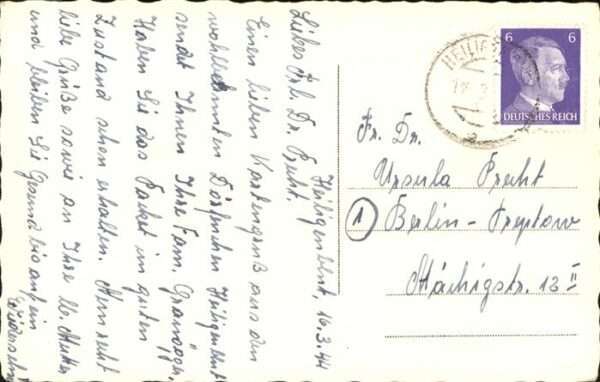 Heiligenblut, 16.3.44
Liebes Frl. Dr. Precht.
Einen lieben Kartengruß aus dem
wohlbekannten Dörfchen Heiligenblut
sendet Ihnen Ihre Fam.
Haben Sie das Paket in guten
Zustand schon erhalten. Nun recht
liebe Grüße sowie an Ihre lb. Mutter
und bleiben Sie Gesund bis auf ein
Wiedersehn
6 6
DEUTSCHES REICH
Fr. Dr.
Ursula Precht
1 Berlin - Treptow
Mächigstr. 13 II